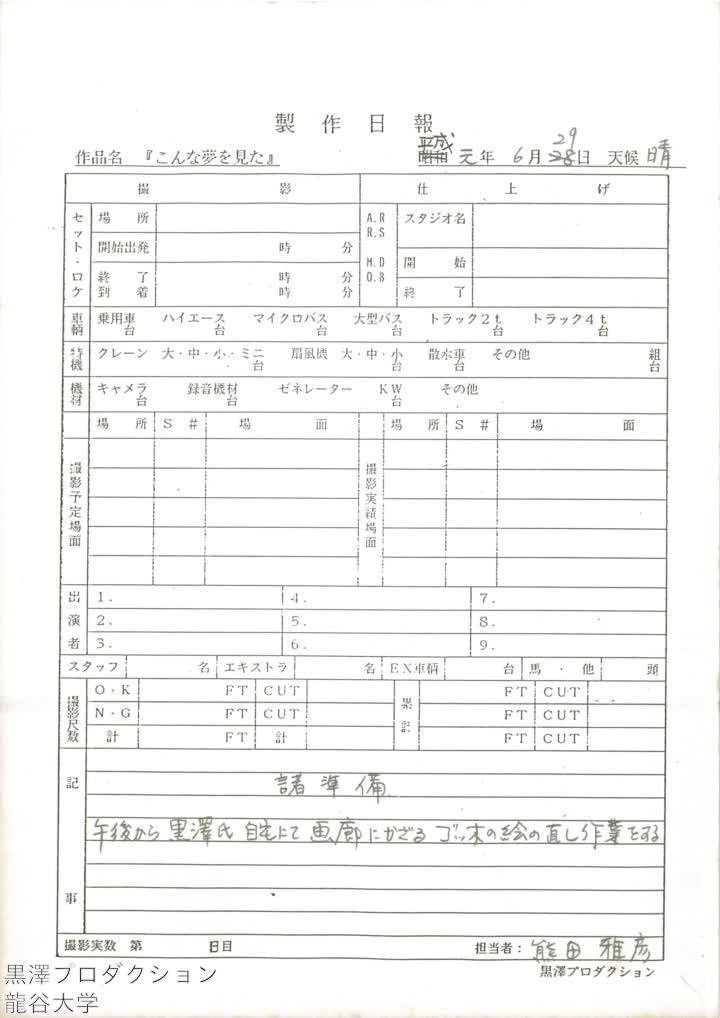 製作日報
作品名 『こんな夢を見た』 平成 元年 6月 29日 天候 晴
撮影 仕上げ
セット・ロケ 場所 A.R R.S スタジオ名
開始出発 時 分 M.D O.B 開始
終了 時 分
到着 時 分 終了
車輌 乗用車 台 ハイエース 台 マイクロバス 台 大型バス 台 トラック2t 台 トラック4t 台
特機 クレーン 大・中・小・ミニ 台 扇風機 大・中・小 台 散水車 台 その他 組 台
機材 キャメラ 台 録音機材 台 ゼネレーター KW 台 その他
場所 S# 場面 場所 S# 場面
撮影予定場面 撮影実績場面
出演者
1. 4. 7.
2. 5. 8.
3. 6. 9.
スタッフ 名 エキストラ 名 EX車輌 台 馬・他 頭
撮影尺数 O・K FT CUT 累計 FT CUT
N・G FT CUT FT CUT
計 FT 計 FT CUT
記事
諸準備
午後から黒澤氏自宅にて画廊にかざるゴッホの絵の直し作業をする
撮影実数 第 日目 担当者: 熊田雅彦
黒澤プロダクション
黒澤プロダクション
龍谷大学